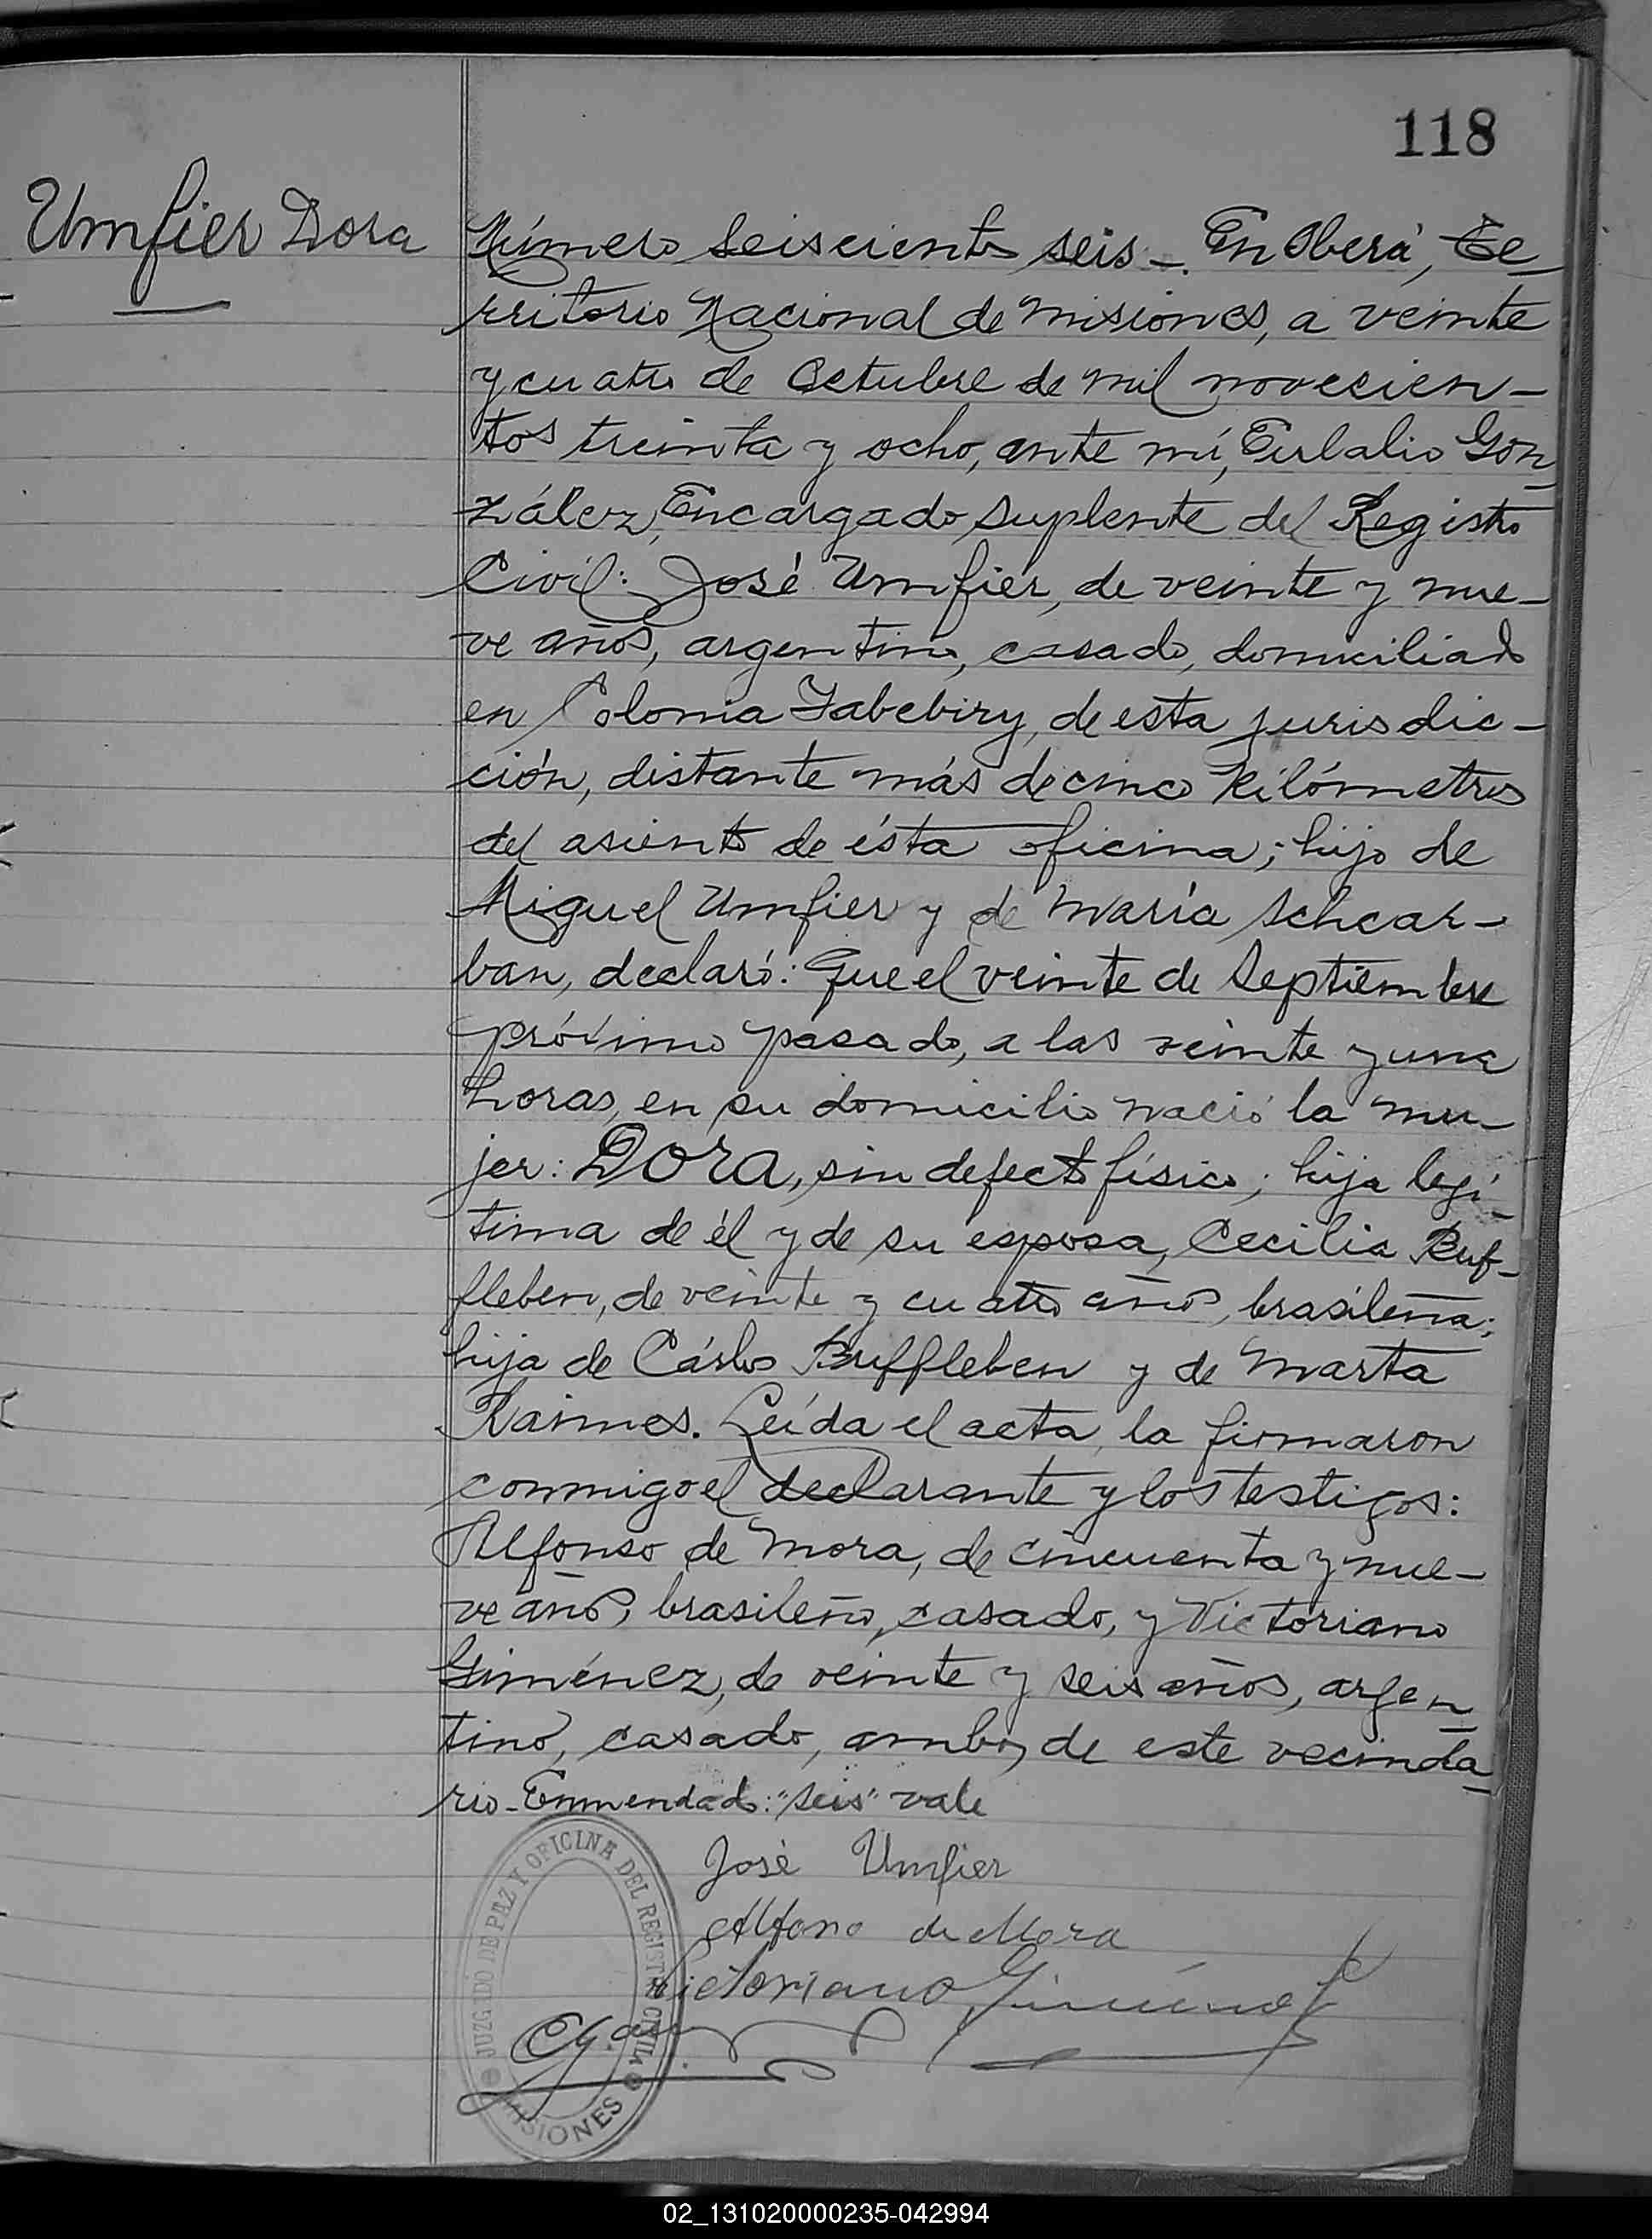 118
Umfier Dora
Número Seiscientos seis_. En Oberá, Te_
rritorio Nacional de Misiones, a veinte
y cuatro de Octubre de mil novecien_
tos treinta y ocho, ante mí, Eulalio Gon_
zález, Encargado Suplente del Registro
Civil: José Umfier, de veinte y nue_
ve años, argentino, casado, domiciliado
en Colonia Yabebiry, de esta jurisdic_
ción, distante más de cinco Kilómetros
del asiento de ésta oficina; hijo de
Miguel Umfier y de María Schear_
ban, declaró: Que el veinte de Septiembre
próximo pasado, a las veinte y una
horas, en su domicilio nació la mu_
jer: DORA, sin defecto físico; hija legí_
tima de él y de su esposa, Cecilia Ruf_
fleben, de veinte y cuatro años, brasileña;
hija de Cárlos Ruffleben y de Marta
Raimes. Leída el acta, la firmaron
conmigo el declarante y los testigos:
Alfonso de Mora, de cincuenta y nue_
ve años, brasileño, casado, y Victoriano
Giménez, de veinte y seis años, argen_
tino, casado, ambos de este vecinda_
rio_Enmendado: "seis" vale
José Umfier
Alfonso de Mora
Victoriano Giménez
JUZGADO DE PAZ Y OFICINA DEL REGISTRO CIVIL
MISIONES
02_131020000235-042994